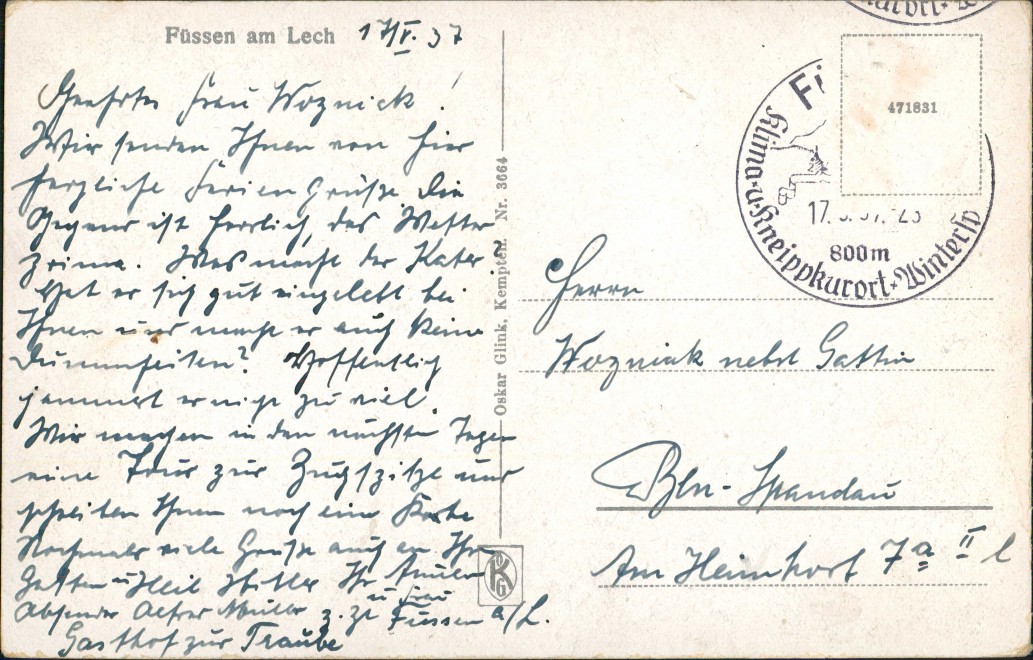 Füssen am Lech 17/V. 37
Geehrte Frau Woznick!
Wir senden Ihnen von hier
herzliche Feriengrüße Die
Gegend ist herrlich, das Wetter
prima. Was macht der Kater?
Hat er sich gut eingelebt bei
Ihnen und macht er auch keine
Dummheiten? Hoffentlich
jammert er nicht zu viel.
Wir machen in den nächsten Tagen
eine Tour zur Zugspitze und
schreiben Ihnen noch eine Karte
Nochmals viele Grüße auch an Ihren
Gatten u Heil Hitler Ihr
u Frau
Absender Alfred Müller z. Zt Füssen a/L.
Gasthof zur Traube
Oskar Glink, Kempten. Nr. 3664
471831
Klima-u-Kneippkurort-Wintersp
17. -23
800m
Herrn
Wozniak nebst Gattin
Bln-Spandau
Am Heimhort 7a II l